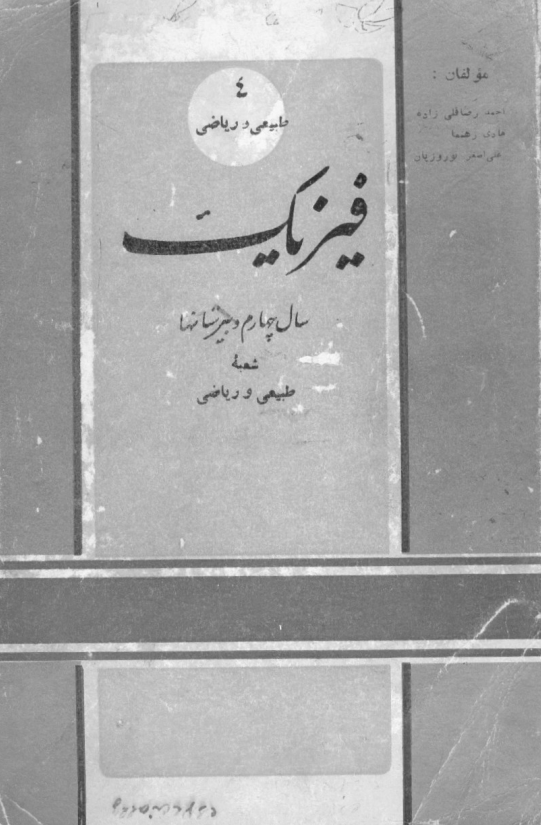 ٤
طبیعی و ریاضی
فیزیک
سال چهارم دبیرستانها
شعبهٔ
طبیعی و ریاضی
مؤلفان :
احمد رضاقلی زاده
هادی رهنما
علی اصغر نوروزیان